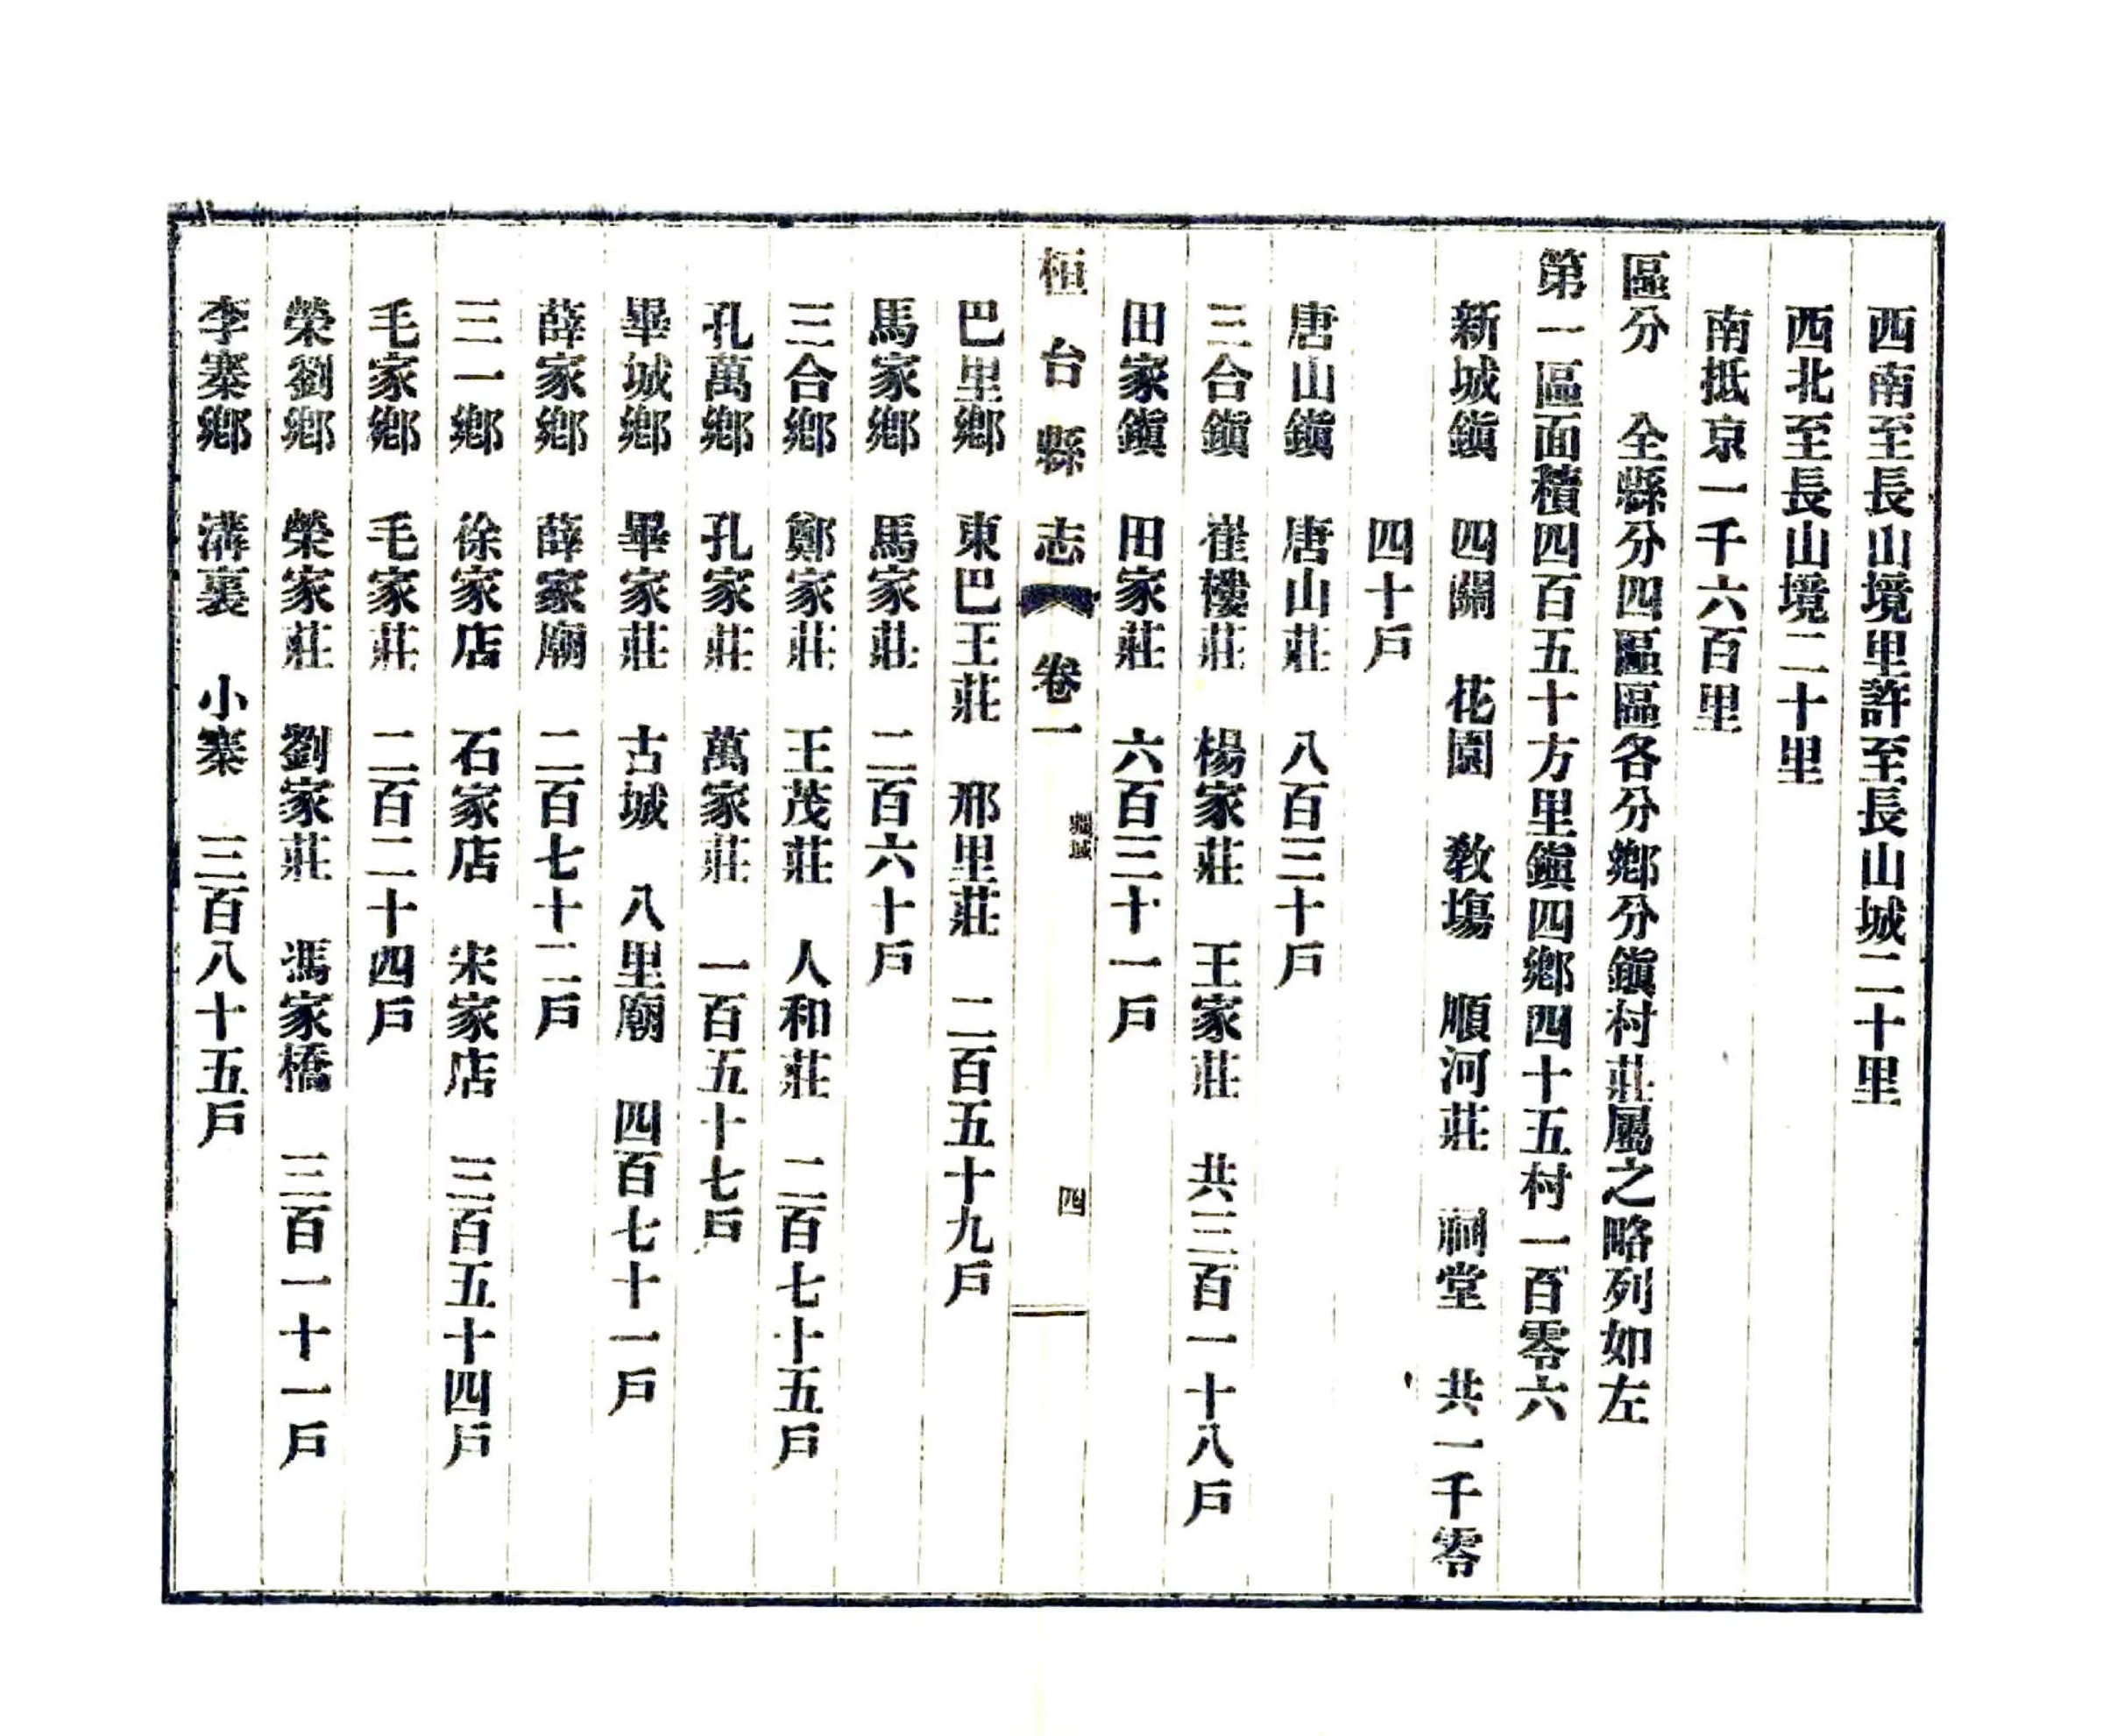 西南至長山境里許至長山城二十里
西北至長山境二十里
南抵京一千六百里
區分　全縣分四區區各分鄉分鎭村莊屬之略列如左
第一區面積四百五十方里鎭四鄉四十五村一百零六
新城鎭　四關　花園　敎塲　順河莊　祠堂　共一千零
四十戶
唐山鎭　唐山莊　八百三十戶
三合鎭　崔樓莊　楊家莊　王家莊　共三百一十八戶
田家鎭　田家莊　六百三十一戶
桓台縣志　卷一　疆域　四
巴里鄉　東巴王莊　邢里莊　二百五十九戶
馬家鄉　馬家莊　二百六十戶
三合鄉　鄭家莊　王茂莊　人和莊　二百七十五戶
孔萬鄉　孔家莊　萬家莊　一百五十七戶
畢城鄉　畢家莊　古城　八里廟　四百七十一戶
薛家鄉　薛家廟　二百七十二戶
三一鄉　徐家店　石家店　宋家店　三百五十四戶
毛家鄉　毛家莊　二百二十四戶
榮劉鄉　榮家莊　劉家莊　馮家橋　三百一十一戶
李寨鄉　溝裏　小寨　三百八十五戶